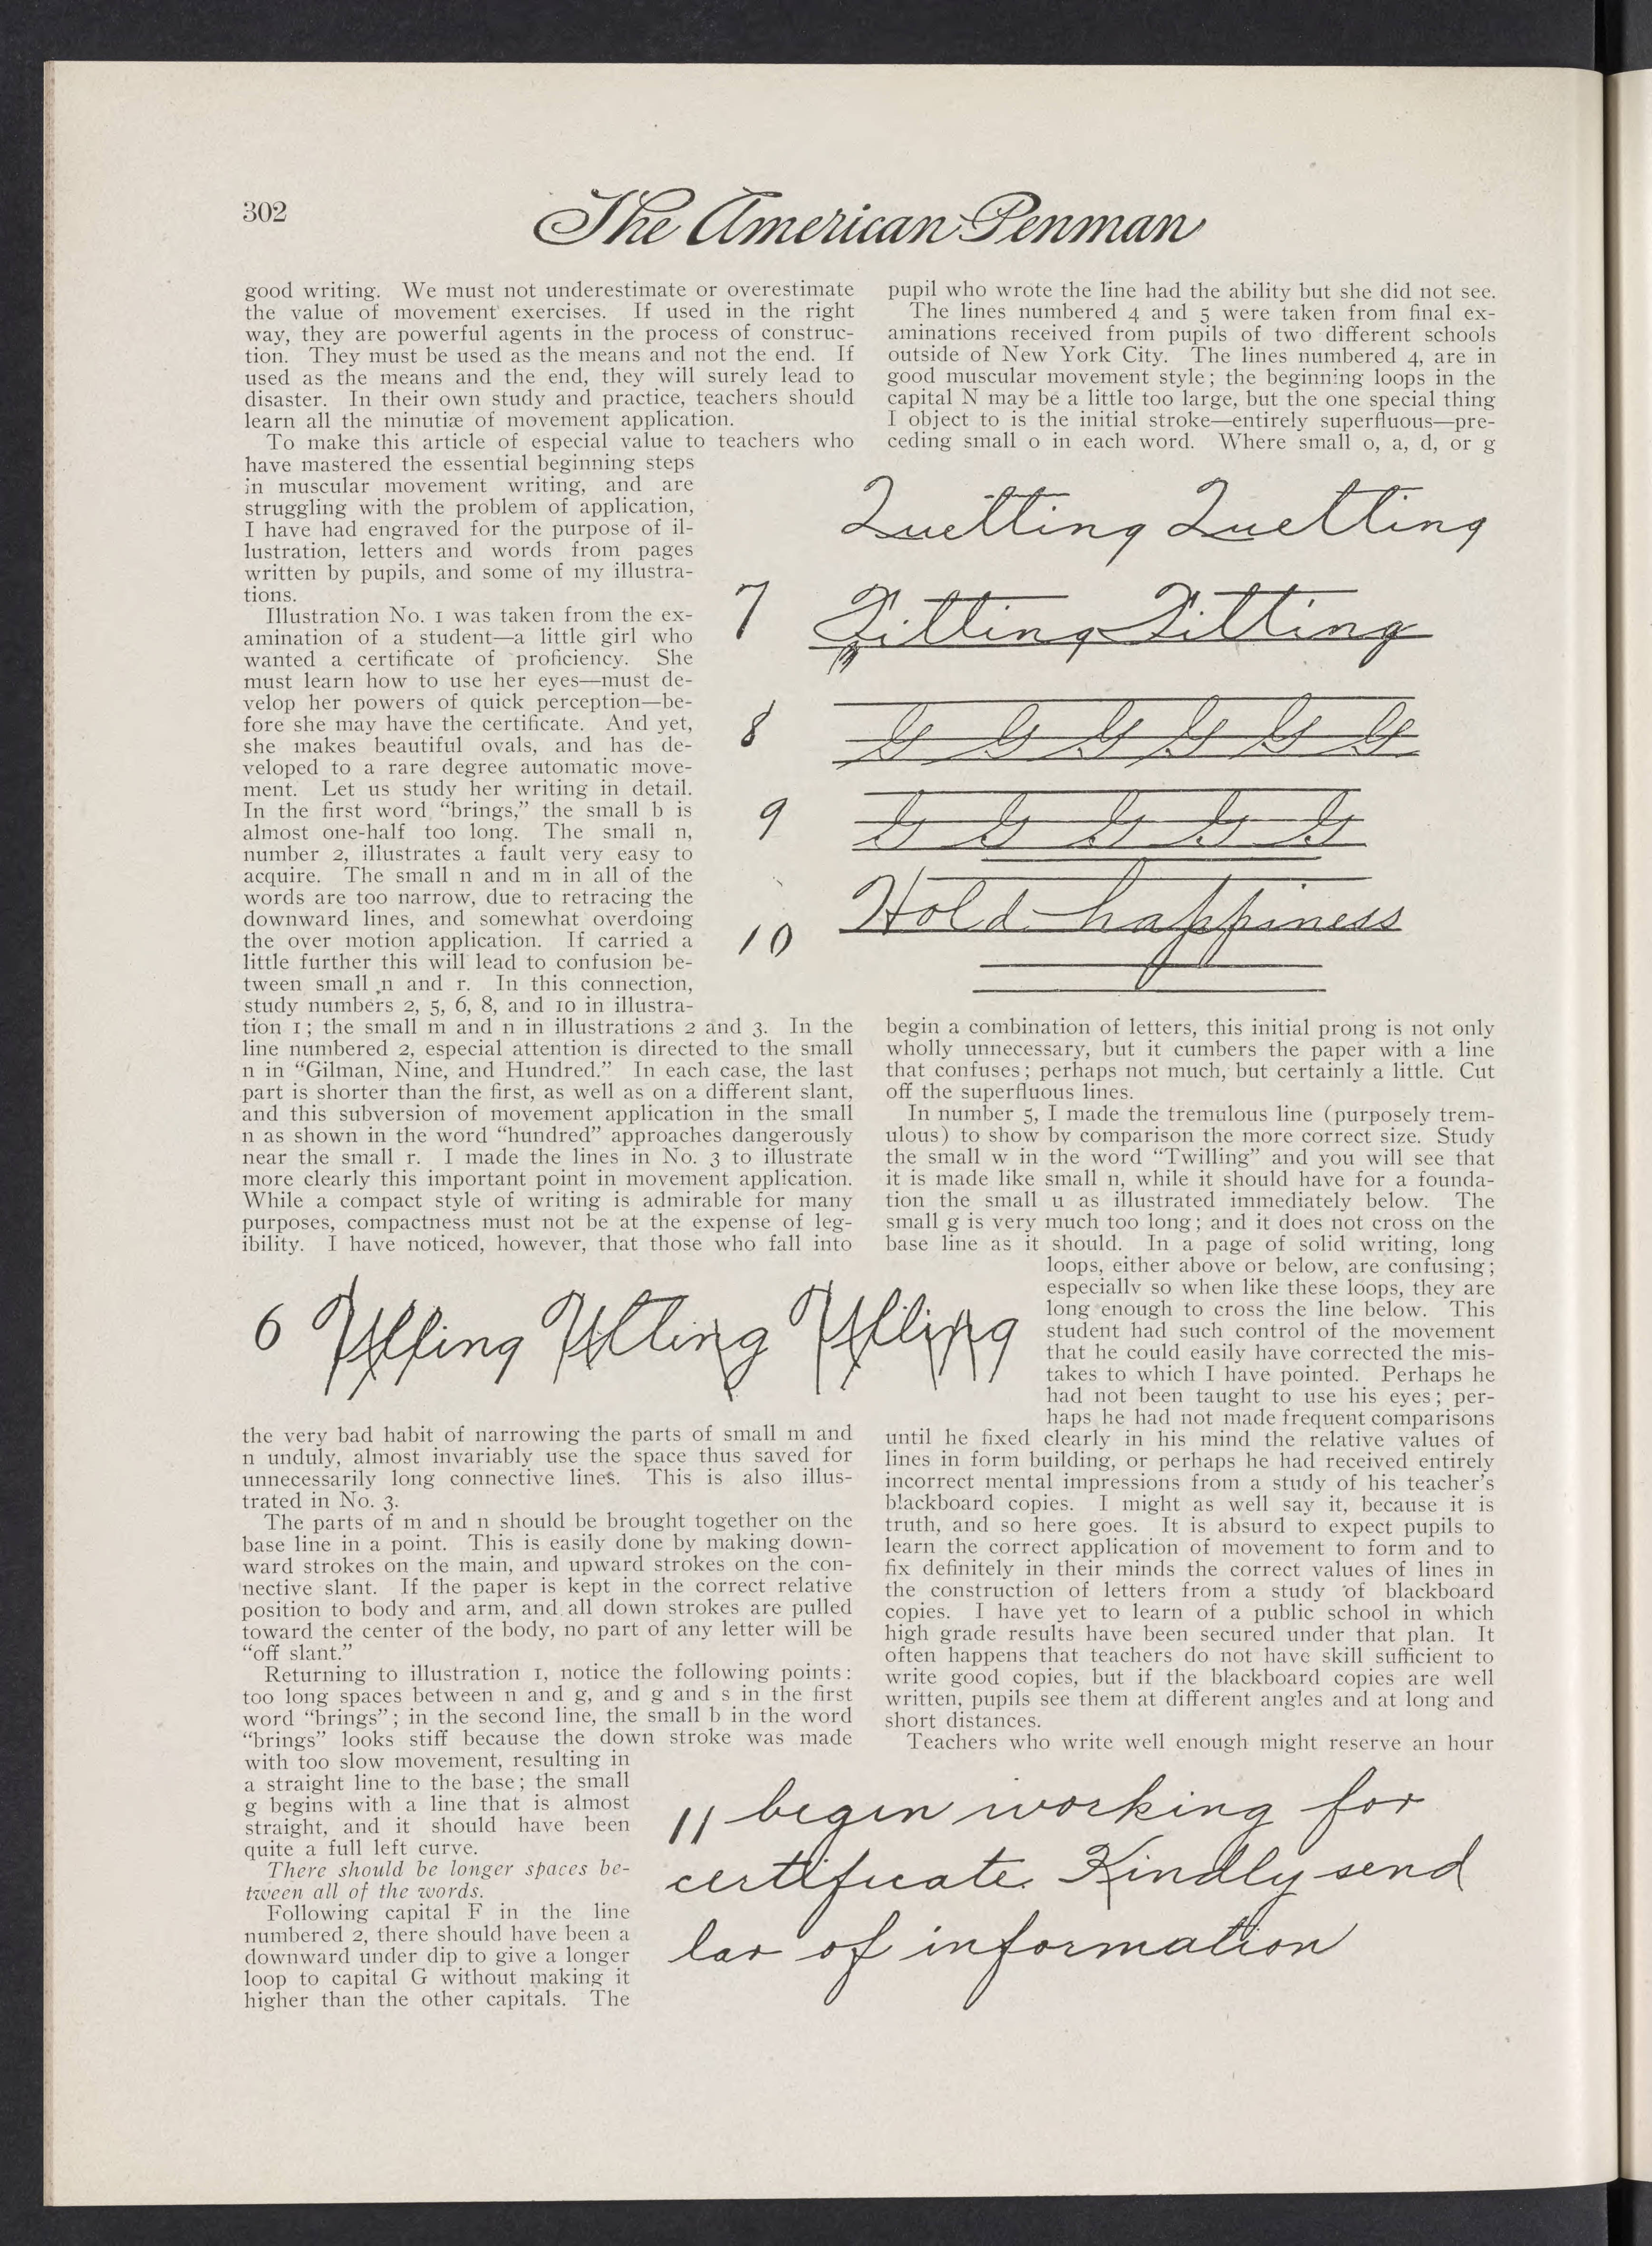 302
The American Penman
good writing. We must not underestimate or overestimate
the value of movement exercises. If used in the right
way, they are powerful agents in the process of construc-
tion. They must be used as the means and not the end. If
used as the means and the end, they will surely lead to
disaster. In their own study and practice, teachers should
learn all the minutiæ of movement application.
To make this article of especial value to teachers who
have mastered the essential beginning steps
in muscular movement writing, and are
struggling with the problem of application,
I have had engraved for the purpose of il-
lustration, letters and words from pages
written by pupils, and some of my illustra-
tions.
Illustration No. 1 was taken from the ex-
amination of a student—a little girl who
wanted a certificate of proficiency. She
must learn how to use her eyes—must de-
velop her powers of quick perception—be-
fore she may have the certificate. And yet,
she makes beautiful ovals, and has de-
veloped to a rare degree automatic move-
ment. Let us study her writing in detail.
In the first word "brings," the small b is
almost one-half too long. The small n,
number 2, illustrates a fault very easy to
acquire. The small n and m in all of the
words are too narrow, due to retracing the
downward lines, and somewhat overdoing
the over motion application. If carried a
little further this will lead to confusion be-
tween small n and r. In this connection,
study numbers 2, 5, 6, 8, and 10 in illustra-
tion 1; the small m and n in illustrations 2 and 3. In the
line numbered 2, especial attention is directed to the small
n in "Gilman, Nine, and Hundred." In each case, the last
part is shorter than the first, as well as on a different slant,
and this subversion of movement application in the small
n as shown in the word "hundred" approaches dangerously
near the small r. I made the lines in No. 3 to illustrate
more clearly this important point in movement application.
While a compact style of writing is admirable for many
purposes, compactness must not be at the expense of leg-
ibility. I have noticed, however, that those who fall into
6
the very bad habit of narrowing the parts of small m and
n unduly, almost invariably use the space thus saved for
unnecessarily long connective lines. This is also illus-
trated in No. 3.
The parts of m and n should be brought together on the
base line in a point. This is easily done by making down-
ward strokes on the main, and upward strokes on the con-
nective slant. If the paper is kept in the correct relative
position to body and arm, and all down strokes are pulled
toward the center of the body, no part of any letter will be
"off slant."
Returning to illustration 1, notice the following points:
too long spaces between n and g, and g and s in the first
word "brings"; in the second line, the small b in the word
"brings" looks stiff because the down stroke was made
with too slow movement, resulting in
a straight line to the base; the small
g begins with a line that is almost
straight, and it should have been
quite a full left curve.
There should be longer spaces be-
tween all of the words.
Following capital F in the line
numbered 2, there should have been a
downward under dip to give a longer
loop to capital G without making it
higher than the other capitals. The
pupil who wrote the line had the ability but she did not see.
The lines numbered 4 and 5 were taken from final ex-
aminations received from pupils of two different schools
outside of New York City. The lines numbered 4, are in
good muscular movement style; the beginning loops in the
capital N may be a little too large, but the one special thing
I object to is the initial stroke—entirely superfluous—pre-
ceding small o in each word. Where small o, a, d, or g
Quetting Quetting
7 Fitting Fitting
8 G G G G G G
9 G G G G G
10 Hold happiness
begin a combination of letters, this initial prong is not only
wholly unnecessary, but it cumbers the paper with a line
that confuses; perhaps not much, but certainly a little. Cut
off the superfluous lines.
In number 5, I made the tremulous line (purposely trem-
ulous) to show by comparison the more correct size. Study
the small w in the word "Twilling" and you will see that
it is made like small n, while it should have for a founda-
tion the small u as illustrated immediately below. The
small g is very much too long; and it does not cross on the
base line as it should. In a page of solid writing, long
loops, either above or below, are confusing;
especially so when like these loops, they are
long enough to cross the line below. This
student had such control of the movement
that he could easily have corrected the mis-
takes to which I have pointed. Perhaps he
had not been taught to use his eyes; per-
haps he had not made frequent comparisons
until he fixed clearly in his mind the relative values of
lines in form building, or perhaps he had received entirely
incorrect mental impressions from a study of his teacher's
blackboard copies. I might as well say it, because it is
truth, and so here goes. It is absurd to expect pupils to
learn the correct application of movement to form and to
fix definitely in their minds the correct values of lines in
the construction of letters from a study of blackboard
copies. I have yet to learn of a public school in which
high grade results have been secured under that plan. It
often happens that teachers do not have skill sufficient to
write good copies, but if the blackboard copies are well
written, pupils see them at different angles and at long and
short distances.
Teachers who write well enough might reserve an hour
11 begin working for
certificate. Kindly send
lar of information